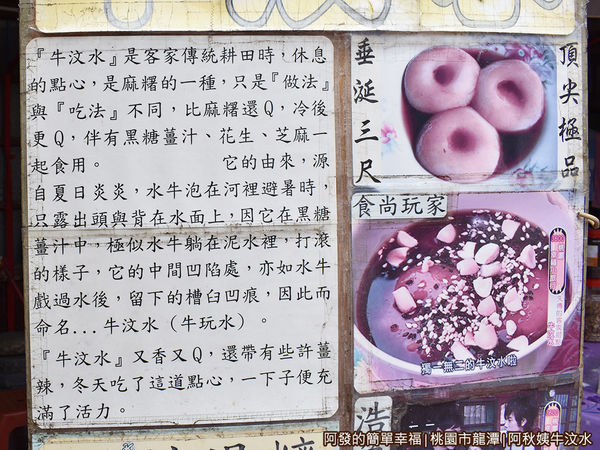 『牛汶水』是客家傳統耕田時，休息
的點心，是麻糬的一種，只是『做法』
與『吃法』不同，比麻糬還Q，冷後
更Q，伴有黑糖薑汁、花生、芝麻一
起食用。 它的由來，源
自夏日炎炎，水牛泡在河裡避暑時，
只露出頭與背在水面上，因它在黑糖
薑汁中，極似水牛躺在泥水裡，打滾
的樣子，它的中間凹陷處，亦如水牛
戲過水後，留下的槽臼凹痕，因此而
命名...牛汶水（牛玩水）。
『牛汶水』又香又Q，還帶有些許薑
辣，冬天吃了這道點心，一下子便充
滿了活力。
垂涎三尺
頂尖極品
食尚玩家
獨一無二的牛汶水啦
浩
阿發的簡單幸福|桃園市龍潭|阿秋姨牛汶水